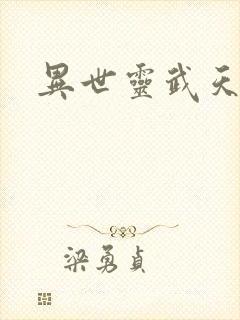 異世靈武天
梁勇貞